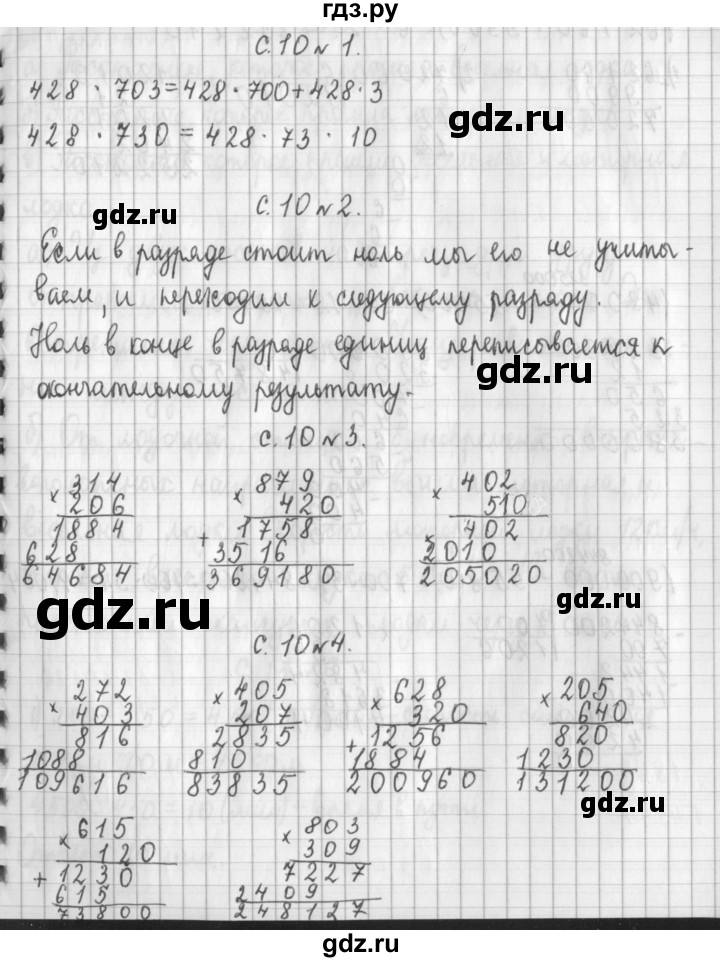 гдз.ру
с. 10 № 1.
428 · 703 = 428 · 700 + 428 · 3
428 · 730 = 428 · 73 · 10
gdz.ru
с. 10 № 2.
Если в разряде стоит ноль мы его не учиты-
ваем, и переходим к следующему разряду.
Ноль в конце в разряде единиц переписывается к
gdz.ru
окончательному результату.
с. 10 № 3.
314 879 402
× 206 × 420 × 510
1884 + 1758 × 402
628 3516 2010
64684 369180 205020
gdz.ru gdz.ru gdz.ru
с. 10 № 4.
272 405 628 205
× 403 × 207 × 320 × 640
816 2835 + 1256 820
1088 810 1884 1230
109616 83835 200960 131200
gdz.ru
615 803
× 120 × 309
+ 1230 7227
615 2409
73800 248127
gdz.ru
gdz.ru